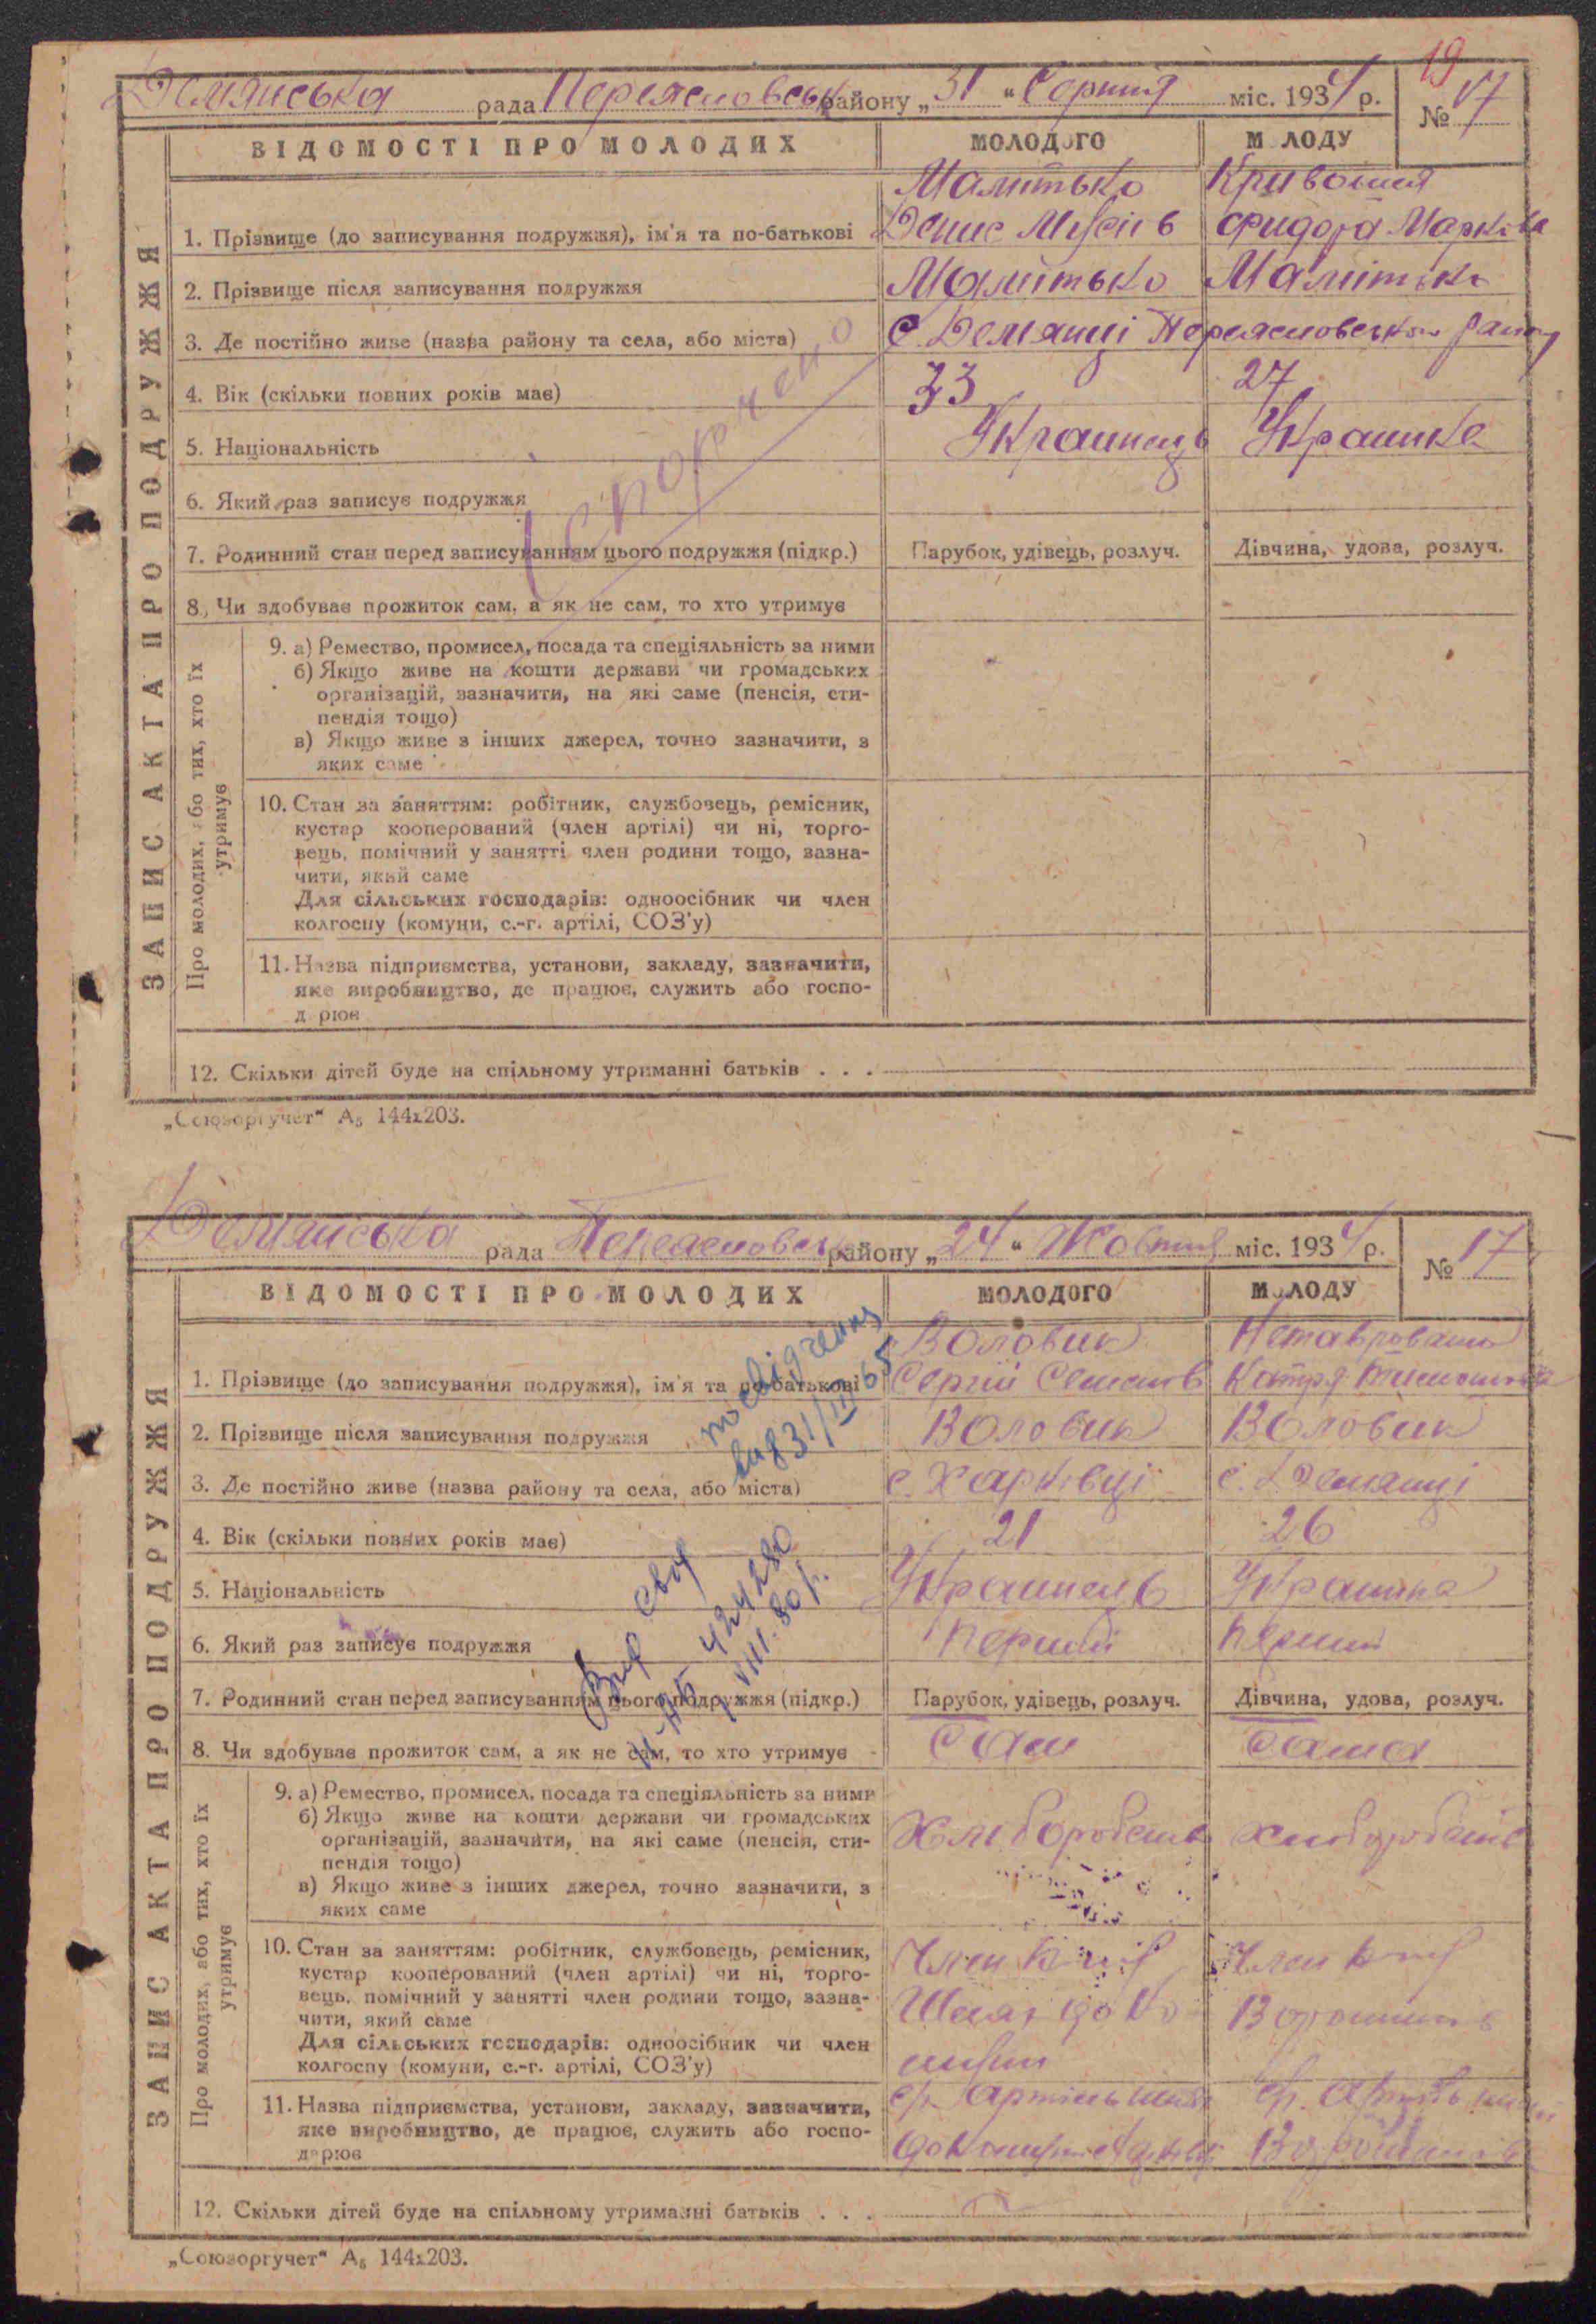 19
Демянська рада Переясловськ району „31“ Серпня міс. 1934 р. № 17
ВІДОМОСТІ ПРО МОЛОДИХ МОЛОДОГО МОЛОДУ
ЗАПИС АКТА ПРО ПОДРУЖЖЯ
Малітько Кривошия
1. Прізвище (до записування подружжя), ім'я та по-батькові Денис Мусіїв Марків
2. Прізвище після записування подружжя Малітько Малітько
3. Де постійно живе (назва району та села, або міста) с. Демянці Переясловського району
4. Вік (скільки повних років має) 33 27
5. Національність Украинець Украинка
6. Який раз записує подружжя
7. Родинний стан перед записуванням цього подружжя (підкр.) Парубок, удівець, розлуч. Дівчина, удова, розлуч.
8. Чи здобуває прожиток сам, а як не сам, то хто утримує
Зпорчено
Про молодих, або тих, хто їх утримує
9. а) Ремество, промисел, посада та спеціяльність за ними
б) Якщо живе на кошти держави чи громадських
організацій, зазначити, на які саме (пенсія, сти-
пендія тощо)
в) Якщо живе з інших джерел, точно зазначити, з
яких саме
10. Стан за заняттям: робітник, службовець, ремісник,
кустар кооперований (член артілі) чи ні, торго-
вець, помічний у занятті член родини тощо, зазна-
чити, який саме
Для сільських господарів: одноосібник чи член
колгоспу (комуни, с.-г. артілі, СОЗ'у)
11. Назва підприємства, установи, закладу, зазначити,
яке виробництво, де працює, служить або госпо-
дарює
12. Скільки дітей буде на спільному утриманні батьків . . .
„Союзоргучет“ А₅ 144х203.
Демянська рада Переясловськ району „24“ Жовтня міс. 1934 р. № 17
ВІДОМОСТІ ПРО МОЛОДИХ МОЛОДОГО МОЛОДУ
ЗАПИС АКТА ПРО ПОДРУЖЖЯ
Воловик
1. Прізвище (до записування подружжя), ім'я та по-батькові Сергій Семенів Катря
2. Прізвище після записування подружжя Воловик Воловик
3. Де постійно живе (назва району та села, або міста) с. Харківці с. Демянці
4. Вік (скільки повних років має) 21 26
5. Національність Украинець Украинка
6. Який раз записує подружжя Перший Перший
7. Родинний стан перед записуванням цього подружжя (підкр.) Парубок, удівець, розлуч. Дівчина, удова, розлуч.
8. Чи здобуває прожиток сам, а як не сам, то хто утримує Сам Сама
посвідчення
вид 31/III 65
Вид. свід
424280
VIII. 80 р.
Про молодих, або тих, хто їх утримує
9. а) Ремество, промисел, посада та спеціяльність за ними
б) Якщо живе на кошти держави чи громадських
організацій, зазначити, на які саме (пенсія, сти-
пендія тощо)
в) Якщо живе з інших джерел, точно зазначити, з
яких саме
Хлиборобець хлиборобець
10. Стан за заняттям: робітник, службовець, ремісник,
кустар кооперований (член артілі) чи ні, торго-
вець, помічний у занятті член родини тощо, зазна-
чити, який саме
Для сільських господарів: одноосібник чи член
колгоспу (комуни, с.-г. артілі, СОЗ'у)
Член Член
Шлях до ко
11. Назва підприємства, установи, закладу, зазначити,
яке виробництво, де працює, служить або госпо-
дарює
Артіль
12. Скільки дітей буде на спільному утриманні батьків . . .
„Союзоргучет“ А₅ 144х203.